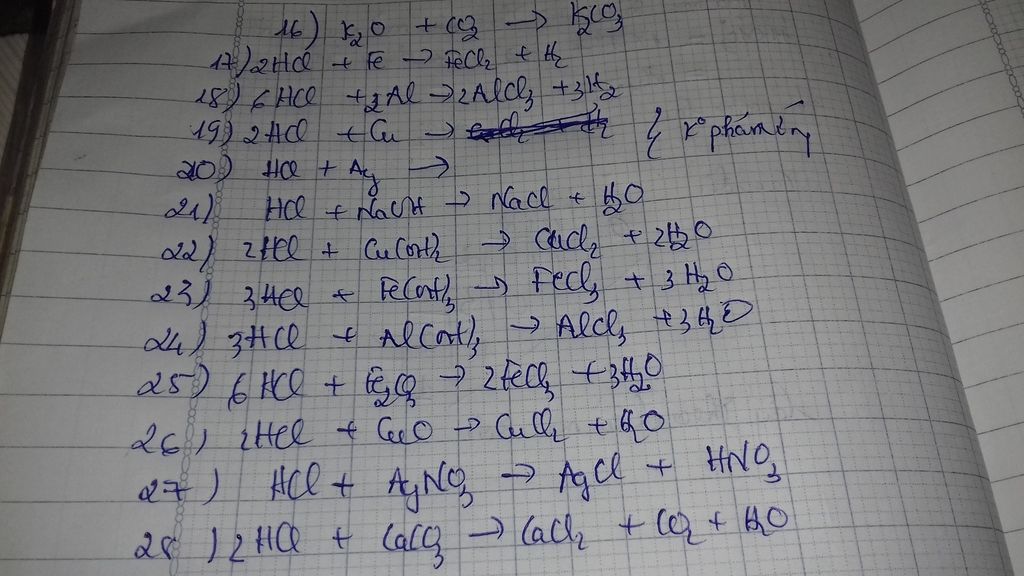 16) K₂O + CO₂ → K₂CO₃
17) 2HCl + Fe → FeCl₂ + H₂
18) 6HCl + 2Al → 2AlCl₃ + 3H₂
19) 2HCl + Cu → { k° phản ứng
20) HCl + Ag →
21) HCl + NaOH → NaCl + H₂O
22) 2HCl + Cu(OH)₂ → CuCl₂ + 2H₂O
23) 3HCl + Fe(OH)₃ → FeCl₃ + 3H₂O
24) 3HCl + Al(OH)₃ → AlCl₃ + 3H₂O
25) 6HCl + Fe₂O₃ → 2FeCl₃ + 3H₂O
26) 2HCl + CuO → CuCl₂ + H₂O
27) HCl + AgNO₃ → AgCl + HNO₃
28) 2HCl + CaCO₃ → CaCl₂ + CO₂ + H₂O